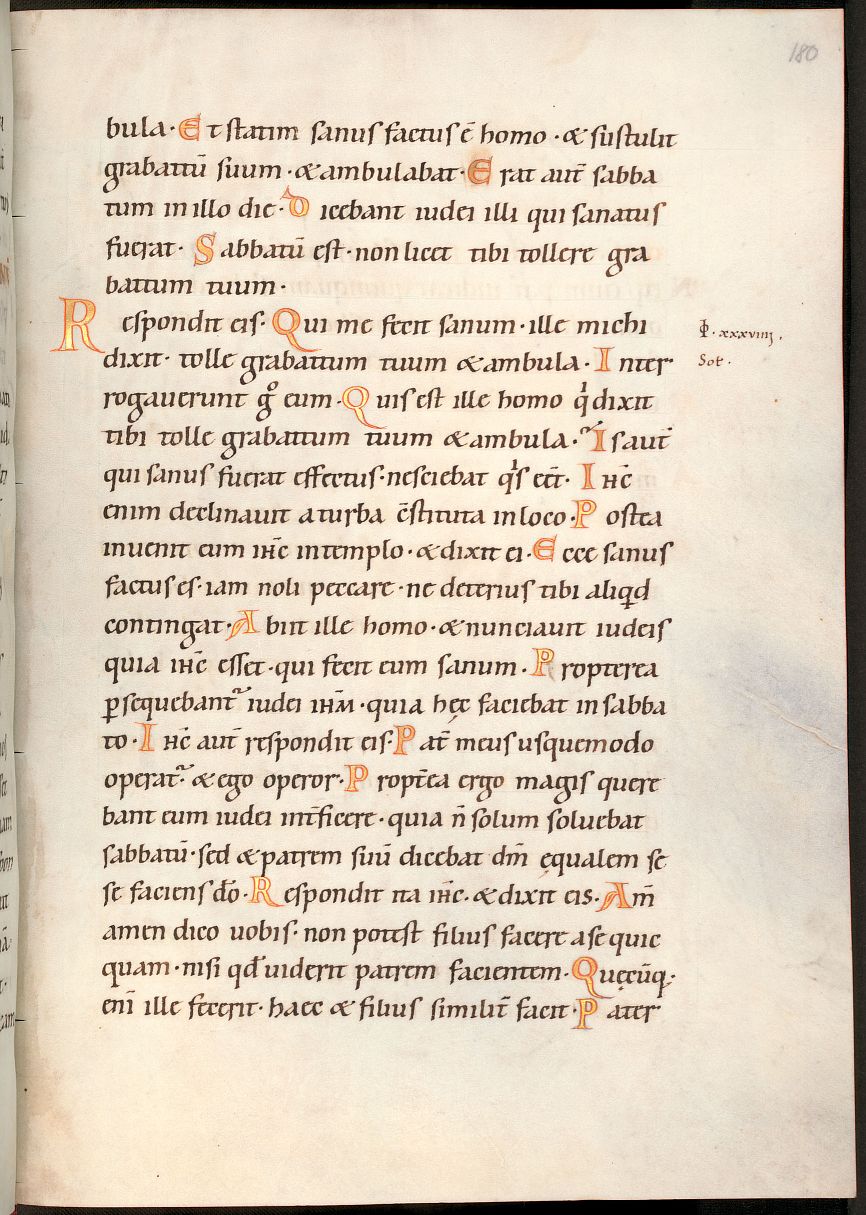 180
bula· Et statim sanus factus ē homo · & sustulit
grabattū suum · & ambulabat· Erat aut̄ sabba
tum in illo die· Dicebant iudei illi qui sanatus
fuerat· Sabbatū est · non licet tibi tollere gra
battum tuum·
Respondit eis· Qui me fecit sanum · ille michi
dixit· tolle grabattum tuum & ambula· Inter
rogauerunt gͦ eum· Quis est ille homo qͥ dixit
tibi tolle grabattum tuum & ambula· Is aut̄
qui sanus fuerat effectus· nesciebat qͥs eēt· Ihc̄
enim declinauit a turba c̄stituta in loco· Postea
inuenit eum ihc̄ in templo · & dixit ei· Ecce sanus
factus es· iam noli peccare · ne deterius tibi aliqͥd
contingat· Abiit ille homo· & nunciauit iudeis
quia ihc̄ esset· qui fecit eum sanum· Propterea
ꝑsequebant᷑ iudei ihm̄ · quia hęc faciebat in sabba
to· Ihc̄ aut̄ respondit eis· Pat̄ meus usque modo
operat᷑ · & ego operor· Propt̄ea ergo magis quere
bant eum iudei int̄ficere· quia n̄ solum soluebat
sabbatū· sed & patrem suū dicebat dm̄ ęqualem se
se faciens dō· Respondit ita ihc̄· & dixit eis· Am̄
amen dico uobis· non potest filius facere a se quic
quam· nisi qd̄ uiderit patrem facientem· Quęcūq;·
eni̅ ille fecerit· haec & filius similit̄ facit· Pater
xxxviiij·